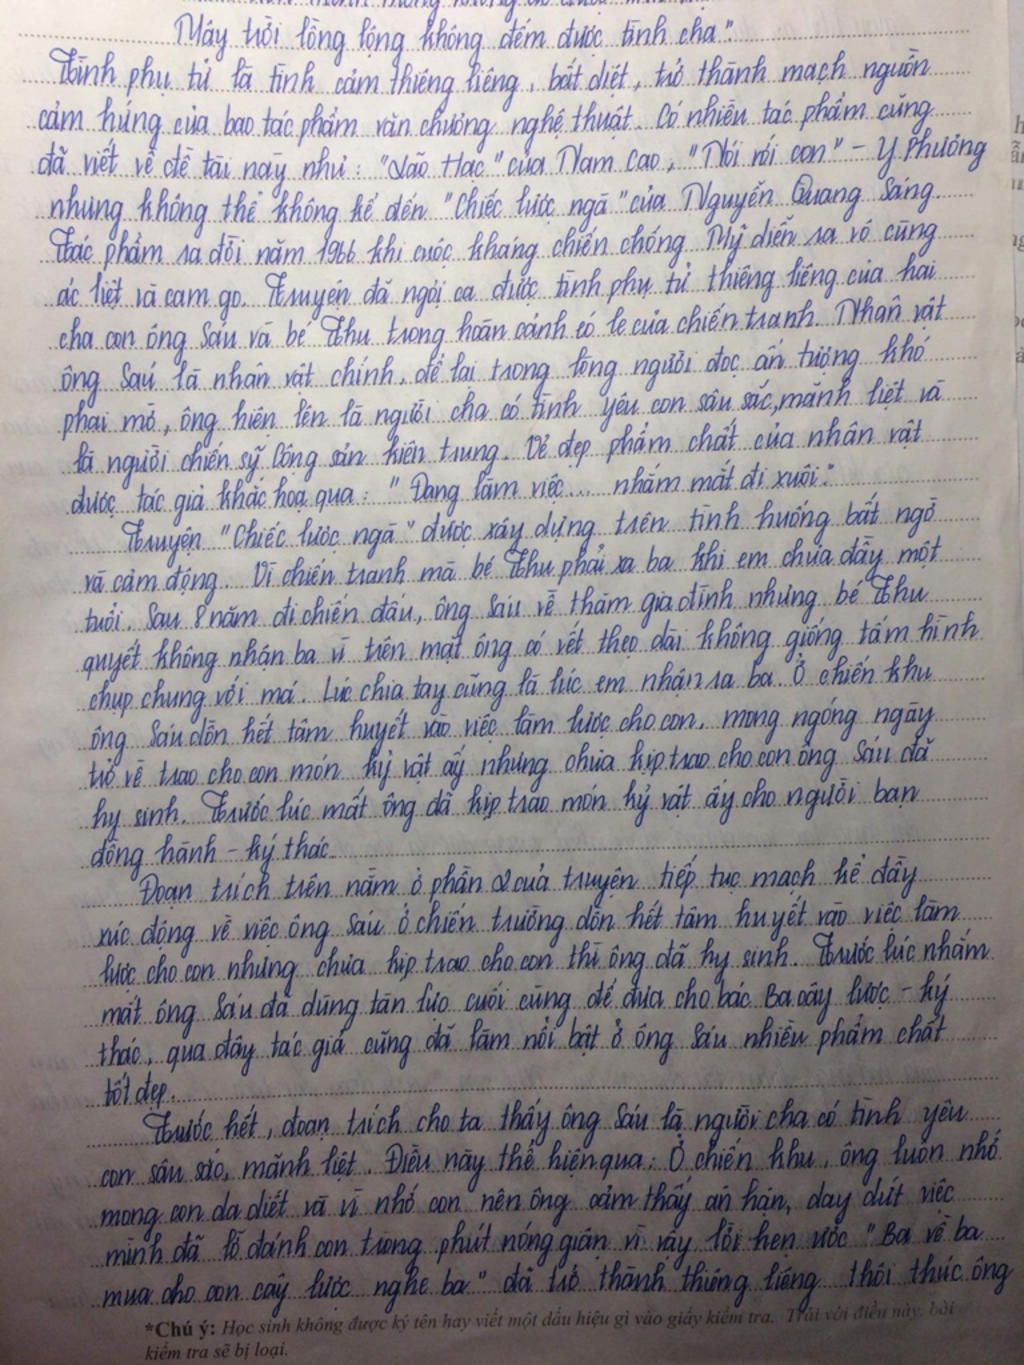 Mây trời lồng lộng không đếm được tình cha".
Tình phụ tử là tình cảm thiêng liêng, bất diệt, trở thành mạch nguồn
cảm hứng của bao tác phẩm văn chương nghệ thuật. Có nhiều tác phẩm cũng
đã viết về đề tài này như: "Lão Hạc" của Nam Cao, "Nói với con" - Y Phương
nhưng không thể không kể đến "Chiếc lược ngà" của Nguyễn Quang Sáng.
Tác phẩm ra đời năm 1966 khi cuộc kháng chiến chống Mỹ diễn ra vô cùng
ác liệt và cam go. Truyện đã ngợi ca được tình phụ tử thiêng liêng của hai
cha con ông Sáu và bé Thu trong hoàn cảnh éo le của chiến tranh. Nhân vật
ông Sáu là nhân vật chính, để lại trong lòng người đọc ấn tượng khó
phai mờ, ông hiện lên là người cha có tình yêu con sâu sắc, mãnh liệt và
là người chiến sỹ Cộng sản kiên trung. Vẻ đẹp phẩm chất của nhân vật
được tác giả khắc hoạ qua: "Đang làm việc... nhắm mắt đi xuôi."
Truyện "Chiếc lược ngà" được xây dựng trên tình huống bất ngờ
và cảm động. Vì chiến tranh mà bé Thu phải xa ba khi em chưa đầy một
tuổi. Sau 8 năm đi chiến đấu, ông Sáu về thăm gia đình nhưng bé Thu
quyết không nhận ba vì trên mặt ông có vết thẹo dài không giống tấm hình
chụp chung với má. Lúc chia tay cũng là lúc em nhận ra ba. Ở chiến khu
ông Sáu dồn hết tâm huyết vào việc làm lược cho con, mong ngóng ngày
trở về trao cho con món kỷ vật ấy nhưng chưa kịp trao cho con ông Sáu đã
hy sinh. Trước lúc mất ông đã kịp trao món kỷ vật ấy cho người bạn
đồng hành - ký thác.
Đoạn trích trên nằm ở phần 2 của truyện tiếp tục mạch kể đầy
xúc động về việc ông Sáu ở chiến trường dồn hết tâm huyết vào việc làm
lược cho con nhưng chưa kịp trao cho con thì ông đã hy sinh. Trước lúc nhắm
mắt ông Sáu đã dùng tàn lực cuối cùng để đưa cho bác Ba cây lược - ký
thác, qua đây tác giả cũng đã làm nổi bật ở ông Sáu nhiều phẩm chất
tốt đẹp.
Trước hết, đoạn trích cho ta thấy ông Sáu là người cha có tình yêu
con sâu sắc, mãnh liệt. Điều này thể hiện qua: Ở chiến khu, ông luôn nhớ
mong con da diết và vì nhớ con nên ông cảm thấy ân hận, day dứt việc
mình đã lỡ đánh con trong phút nóng giận vì vậy lời hẹn ước "Ba về ba
mua cho con cây lược nghe ba" đã trở thành thiêng liêng thôi thúc ông
*Chú ý: Học sinh không được ký tên hay viết một dấu hiệu gì vào giấy kiểm tra. Trái với điều này, bài
kiểm tra sẽ bị loại.